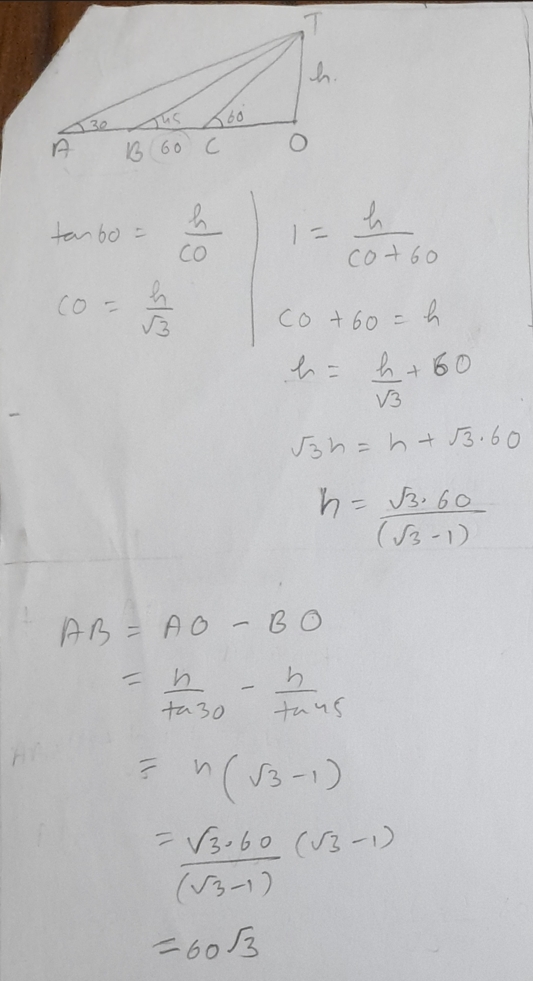 T
h.
30 45 60
A B 60 C O
tan 60 = h / CO
CO = h / √3
1 = h / (CO + 60)
CO + 60 = h
h = h / √3 + 60
√3h = h + √3·60
h = √3·60 / (√3 - 1)
AB = AO - BO
= h / ta30 - h / ta45
= h(√3 - 1)
= √3·60 / (√3 - 1) (√3 - 1)
= 60√3